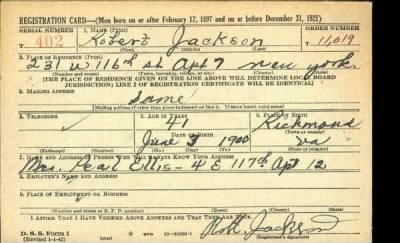 REGISTRATION CARD—(Men born on or after February 17, 1897 and on or before December 31, 1921)
SERIAL NUMBER 1. NAME (Print) ORDER NUMBER
402 Robert Jackson 11,019
(First) (Middle) (Last)
2. PLACE OF RESIDENCE (Print)
231 W 116th St Apt 7 New York
(Number and street) (Town, township, village, or city) (County) (State)
[THE PLACE OF RESIDENCE GIVEN ON THE LINE ABOVE WILL DETERMINE LOCAL BOARD
JURISDICTION; LINE 2 OF REGISTRATION CERTIFICATE WILL BE IDENTICAL]
3. MAILING ADDRESS
Same
[Mailing address if other than place indicated on line 2. If same insert word same]
4. TELEPHONE 5. AGE IN YEARS 6. PLACE OF BIRTH
41 Richmond
DATE OF BIRTH
June 3 1900 Va
(Mo.) (Day) (Yr.)
7. NAME AND ADDRESS OF PERSON WHO WILL ALWAYS KNOW YOUR ADDRESS
Mrs. Pearl Ellis - 4 E 117th Apt 12
8. EMPLOYER'S NAME AND ADDRESS
9. PLACE OF EMPLOYMENT OR BUSINESS
(Number and street or R. F. D. number) (Town) (County) (State)
I AFFIRM THAT I HAVE VERIFIED ABOVE ANSWERS AND THAT THEY ARE TRUE.
D. S. S. Form 1
(Revised 1-1-42) (over) GPO Robt. Jackson
(Registrant's signature)